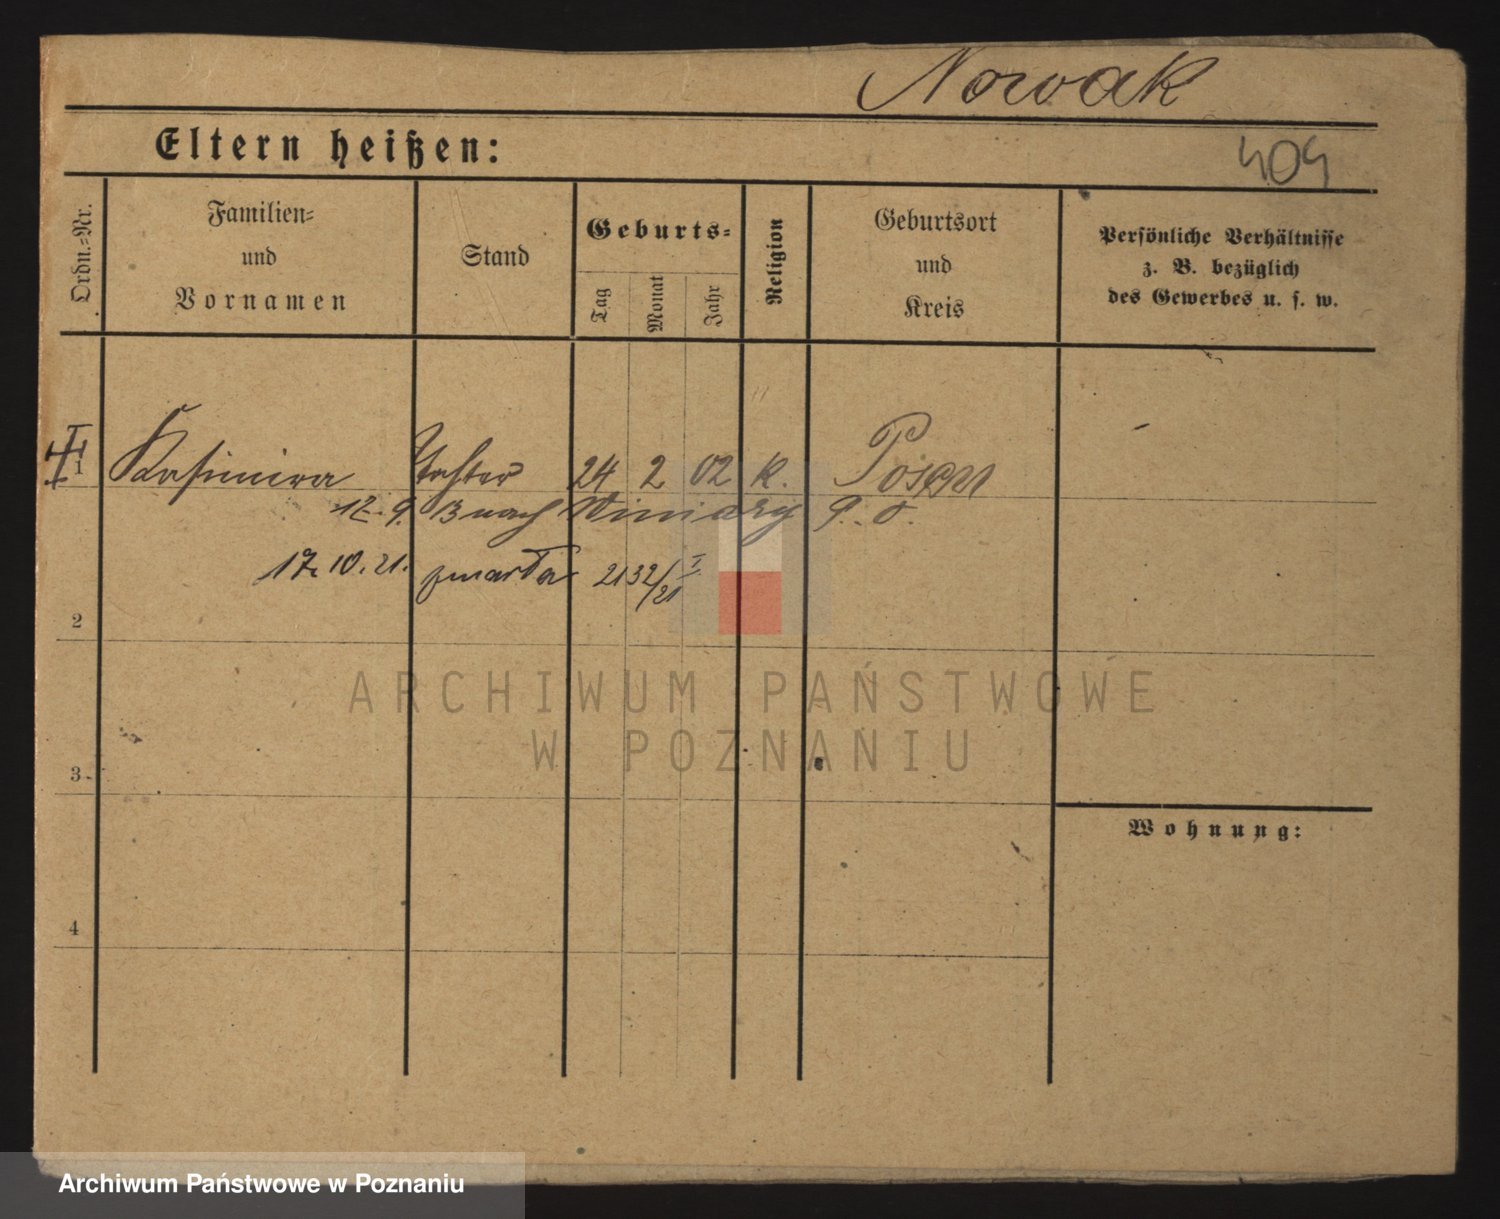 Nowak
Eltern heißen:
404
Ordn.=Nr.
Familien=
und
Vornamen
Stand
Geburts=
Tag
Monat
Jahr
Religion
Geburtsort
und
Kreis
Persönliche Verhältnisse
z. B. bezüglich
des Gewerbes u. s. w.
1 Kasimira Tochter 24 2 02 k. Posen
9. 13 nach Winiary
17. 10. 21. zmarła 2132/21 I
2
3
4
Wohnung:
ARCHIWUM PAŃSTWOWE
W POZNANIU
Archiwum Państwowe w Poznaniu